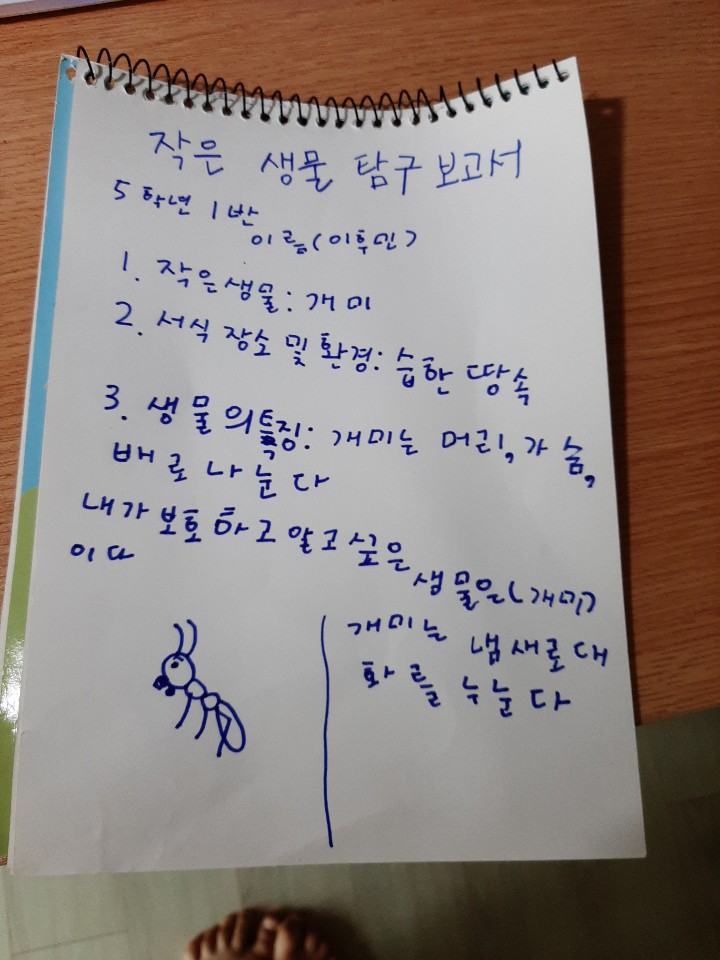 작은 생물 탐구 보고서
5 학년 1 반
이름(이후민)
1. 작은생물: 개미
2. 서식 장소 및 환경: 습한 땅속
3. 생물의특징: 개미는 머리, 가슴,
배로 나눈다
내가 보호하고 알고 싶은 생물은(개미)
이다
개미는 냄새로대
화를 누눈다